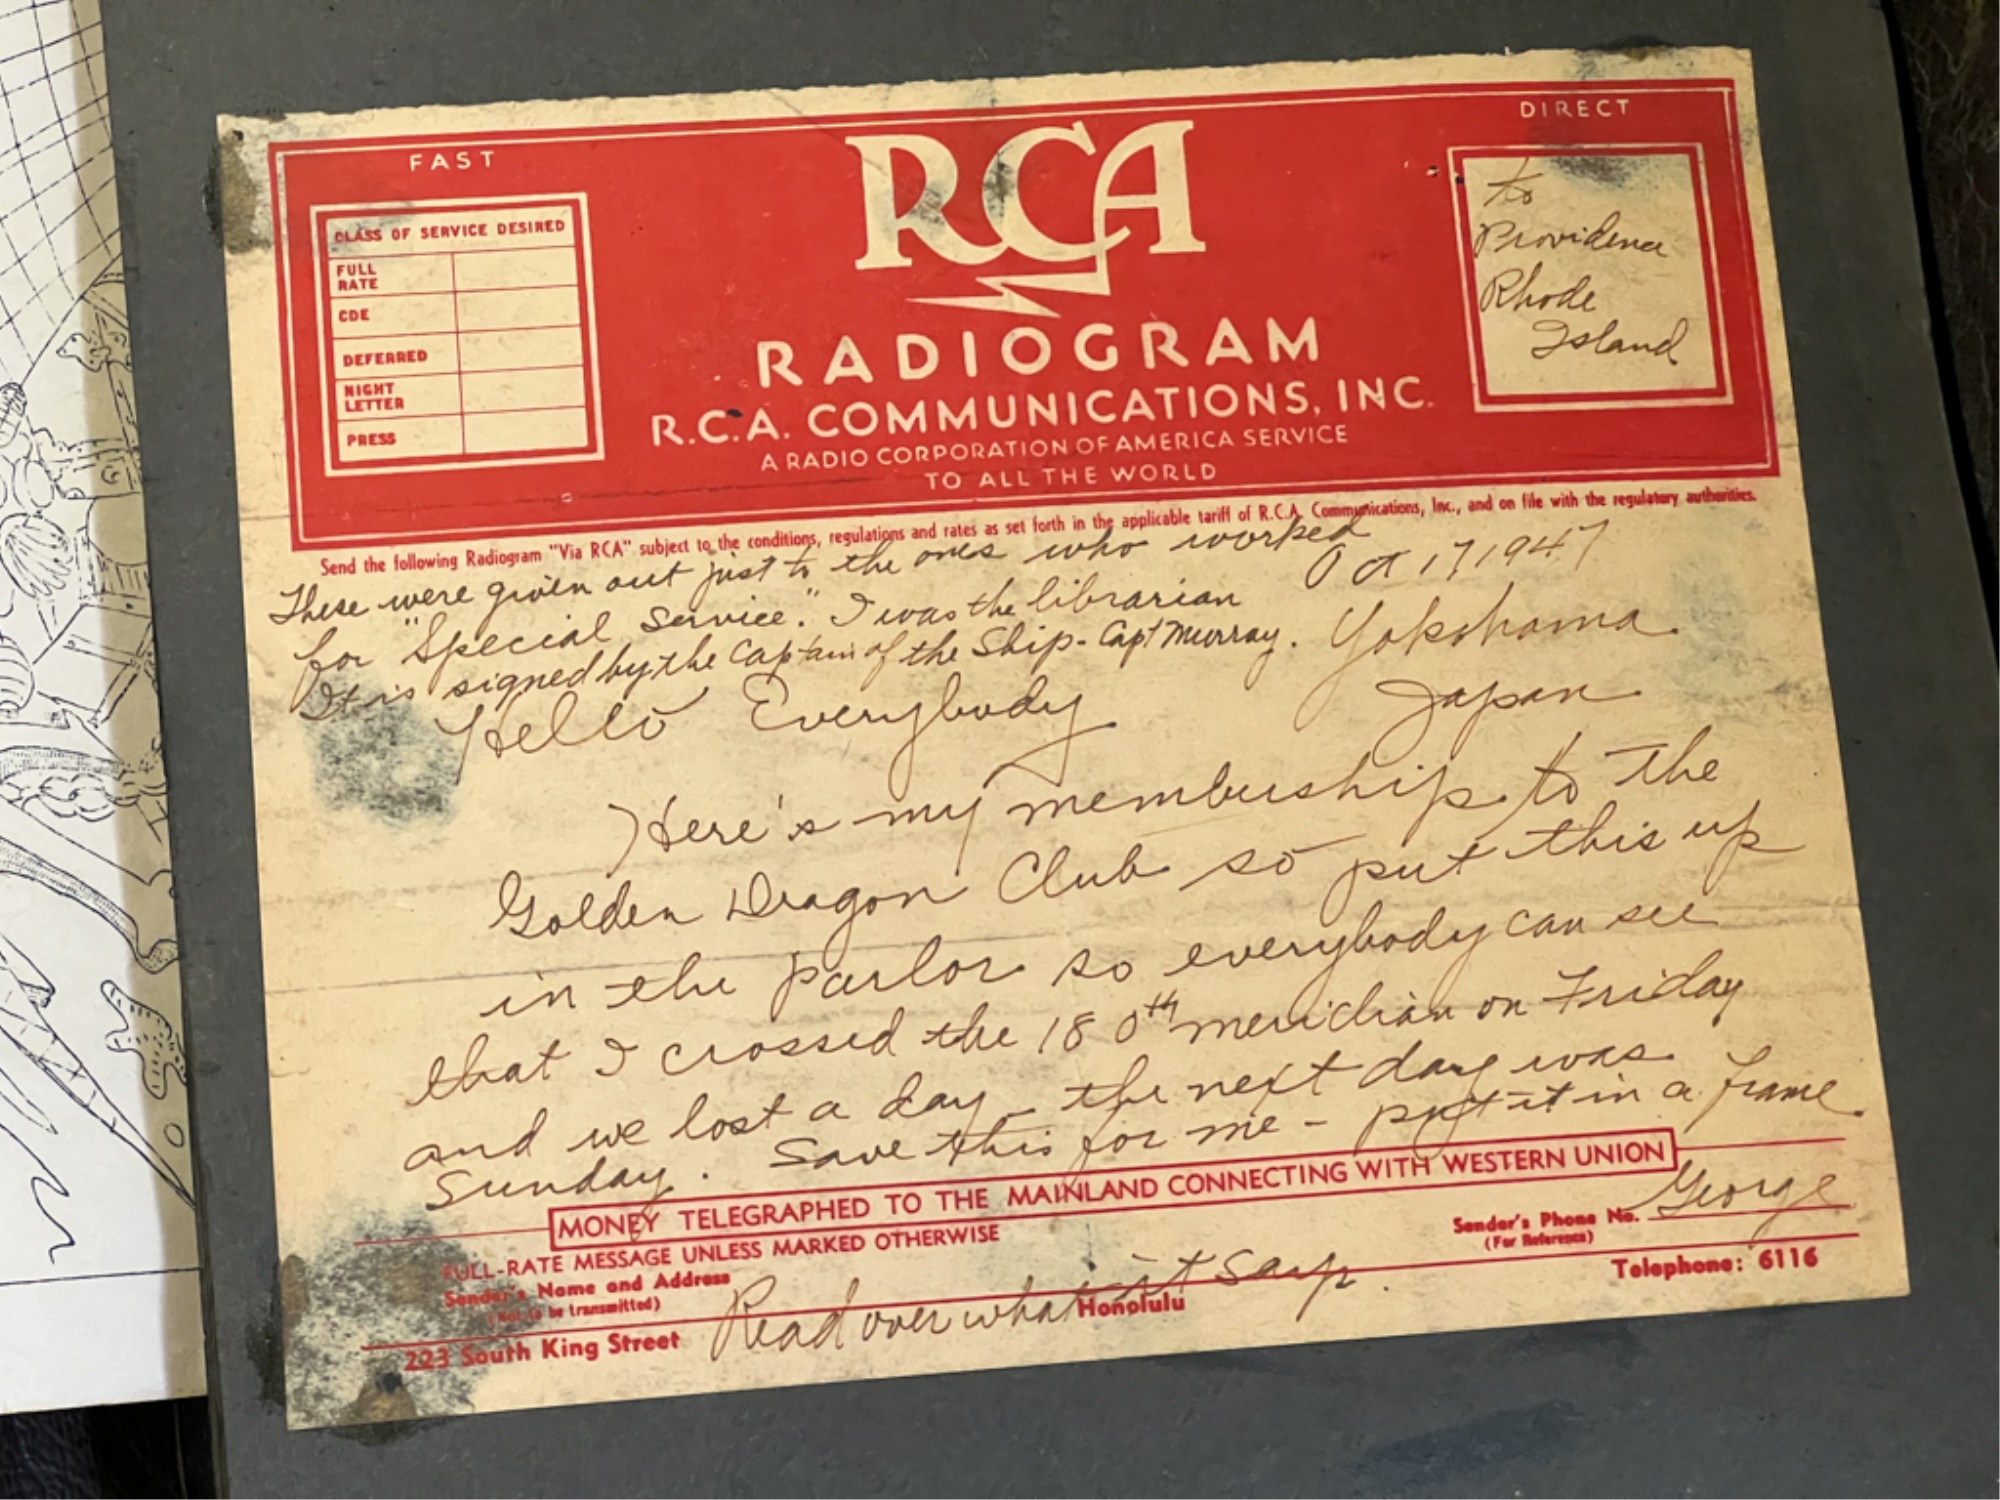 FAST
DIRECT
RCA
CLASS OF SERVICE DESIRED
FULL RATE
CDE
DEFERRED
NIGHT LETTER
PRESS
to
Providence
Rhode
Island
RADIOGRAM
R.C.A. COMMUNICATIONS, INC.
A RADIO CORPORATION OF AMERICA SERVICE
TO ALL THE WORLD
Send the following Radiogram "Via RCA" subject to the conditions, regulations and rates as set forth in the applicable tariff of R.C.A. Communications, Inc., and on file with the regulatory authorities.
These were given out just to the ones who worked
for "Special Service." I was the librarian
It is signed by the Captain of the Ship - Capt Murray.
Oct 17 1947
Yokohama
Japan
Hello Everybody
Here's my membership to the
Golden Dragon Club so put this up
in the parlor so everybody can see
that I crossed the 180th meridian on Friday
and we lost a day - the next day was
Sunday. Save this for me - put it in a frame
George
MONEY TELEGRAPHED TO THE MAINLAND CONNECTING WITH WESTERN UNION
FULL-RATE MESSAGE UNLESS MARKED OTHERWISE
Sender's Name and Address
(Not to be transmitted)
Sender's Phone No.
(For Reference)
Read over what it says.
223 South King Street
Honolulu
Telephone: 6116